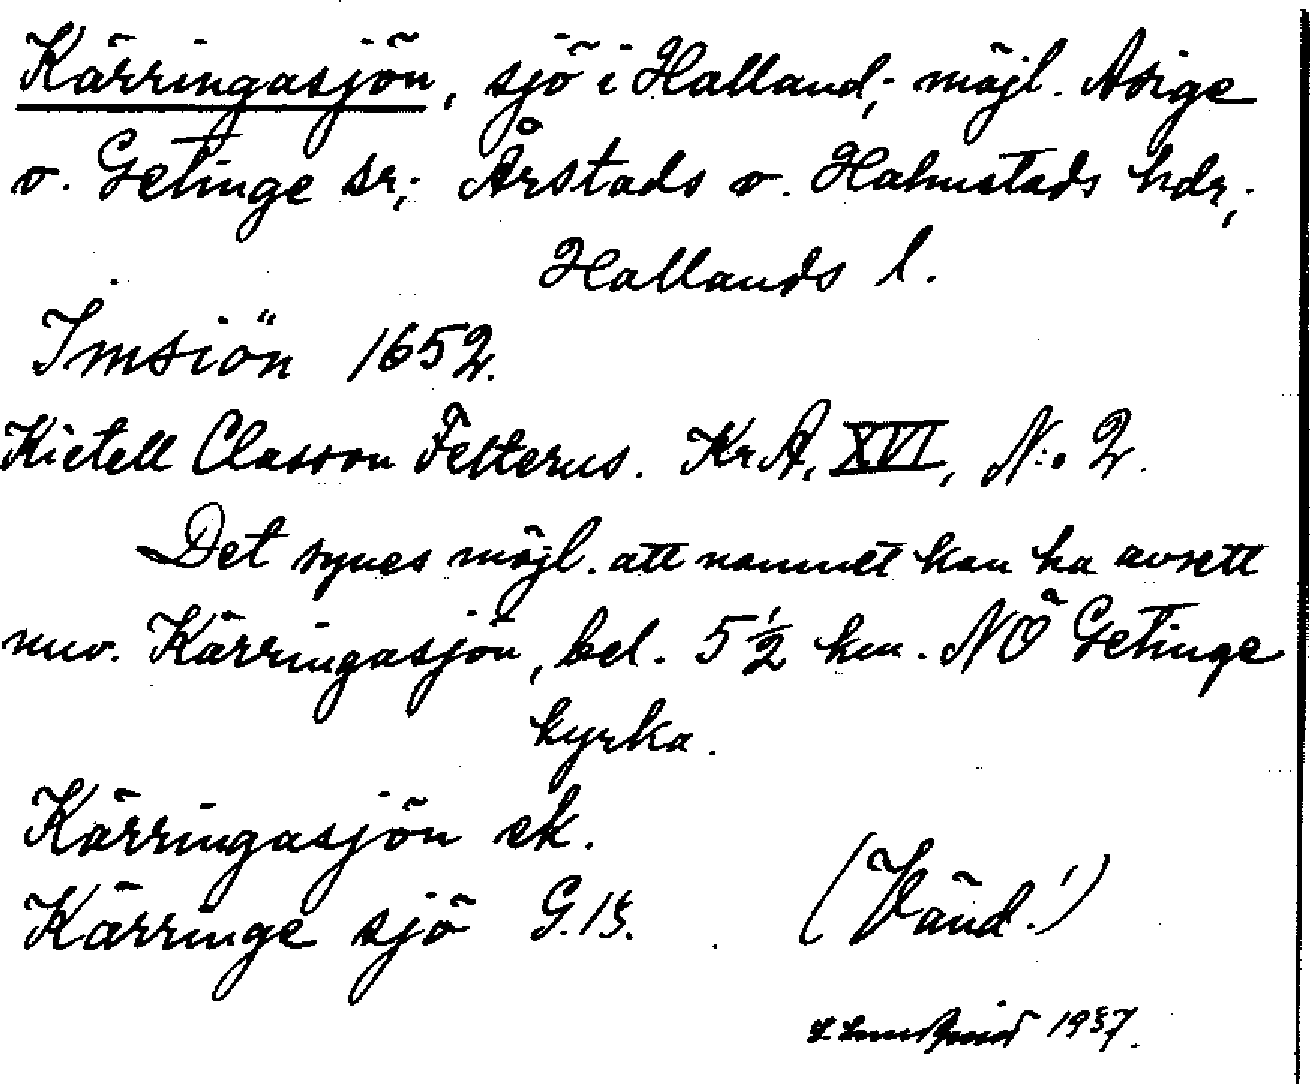 Kärringasjön, sjö i Halland; möjl. Asige
o. Getinge sr; Årstads o. Halmstads hdr;
Hallands l.
Imsiön 1652.
Kietell Classon Felterus. KrA, XVI, N:o 2.
Det synes möjl. att namnet kan ha avsett
nuv. Kärringasjön, bel. 5 1/2 km. NÖ Getinge
kyrka.
Kärringasjön ek.
Kärringe sjö G.
(Vänd!)
1937.